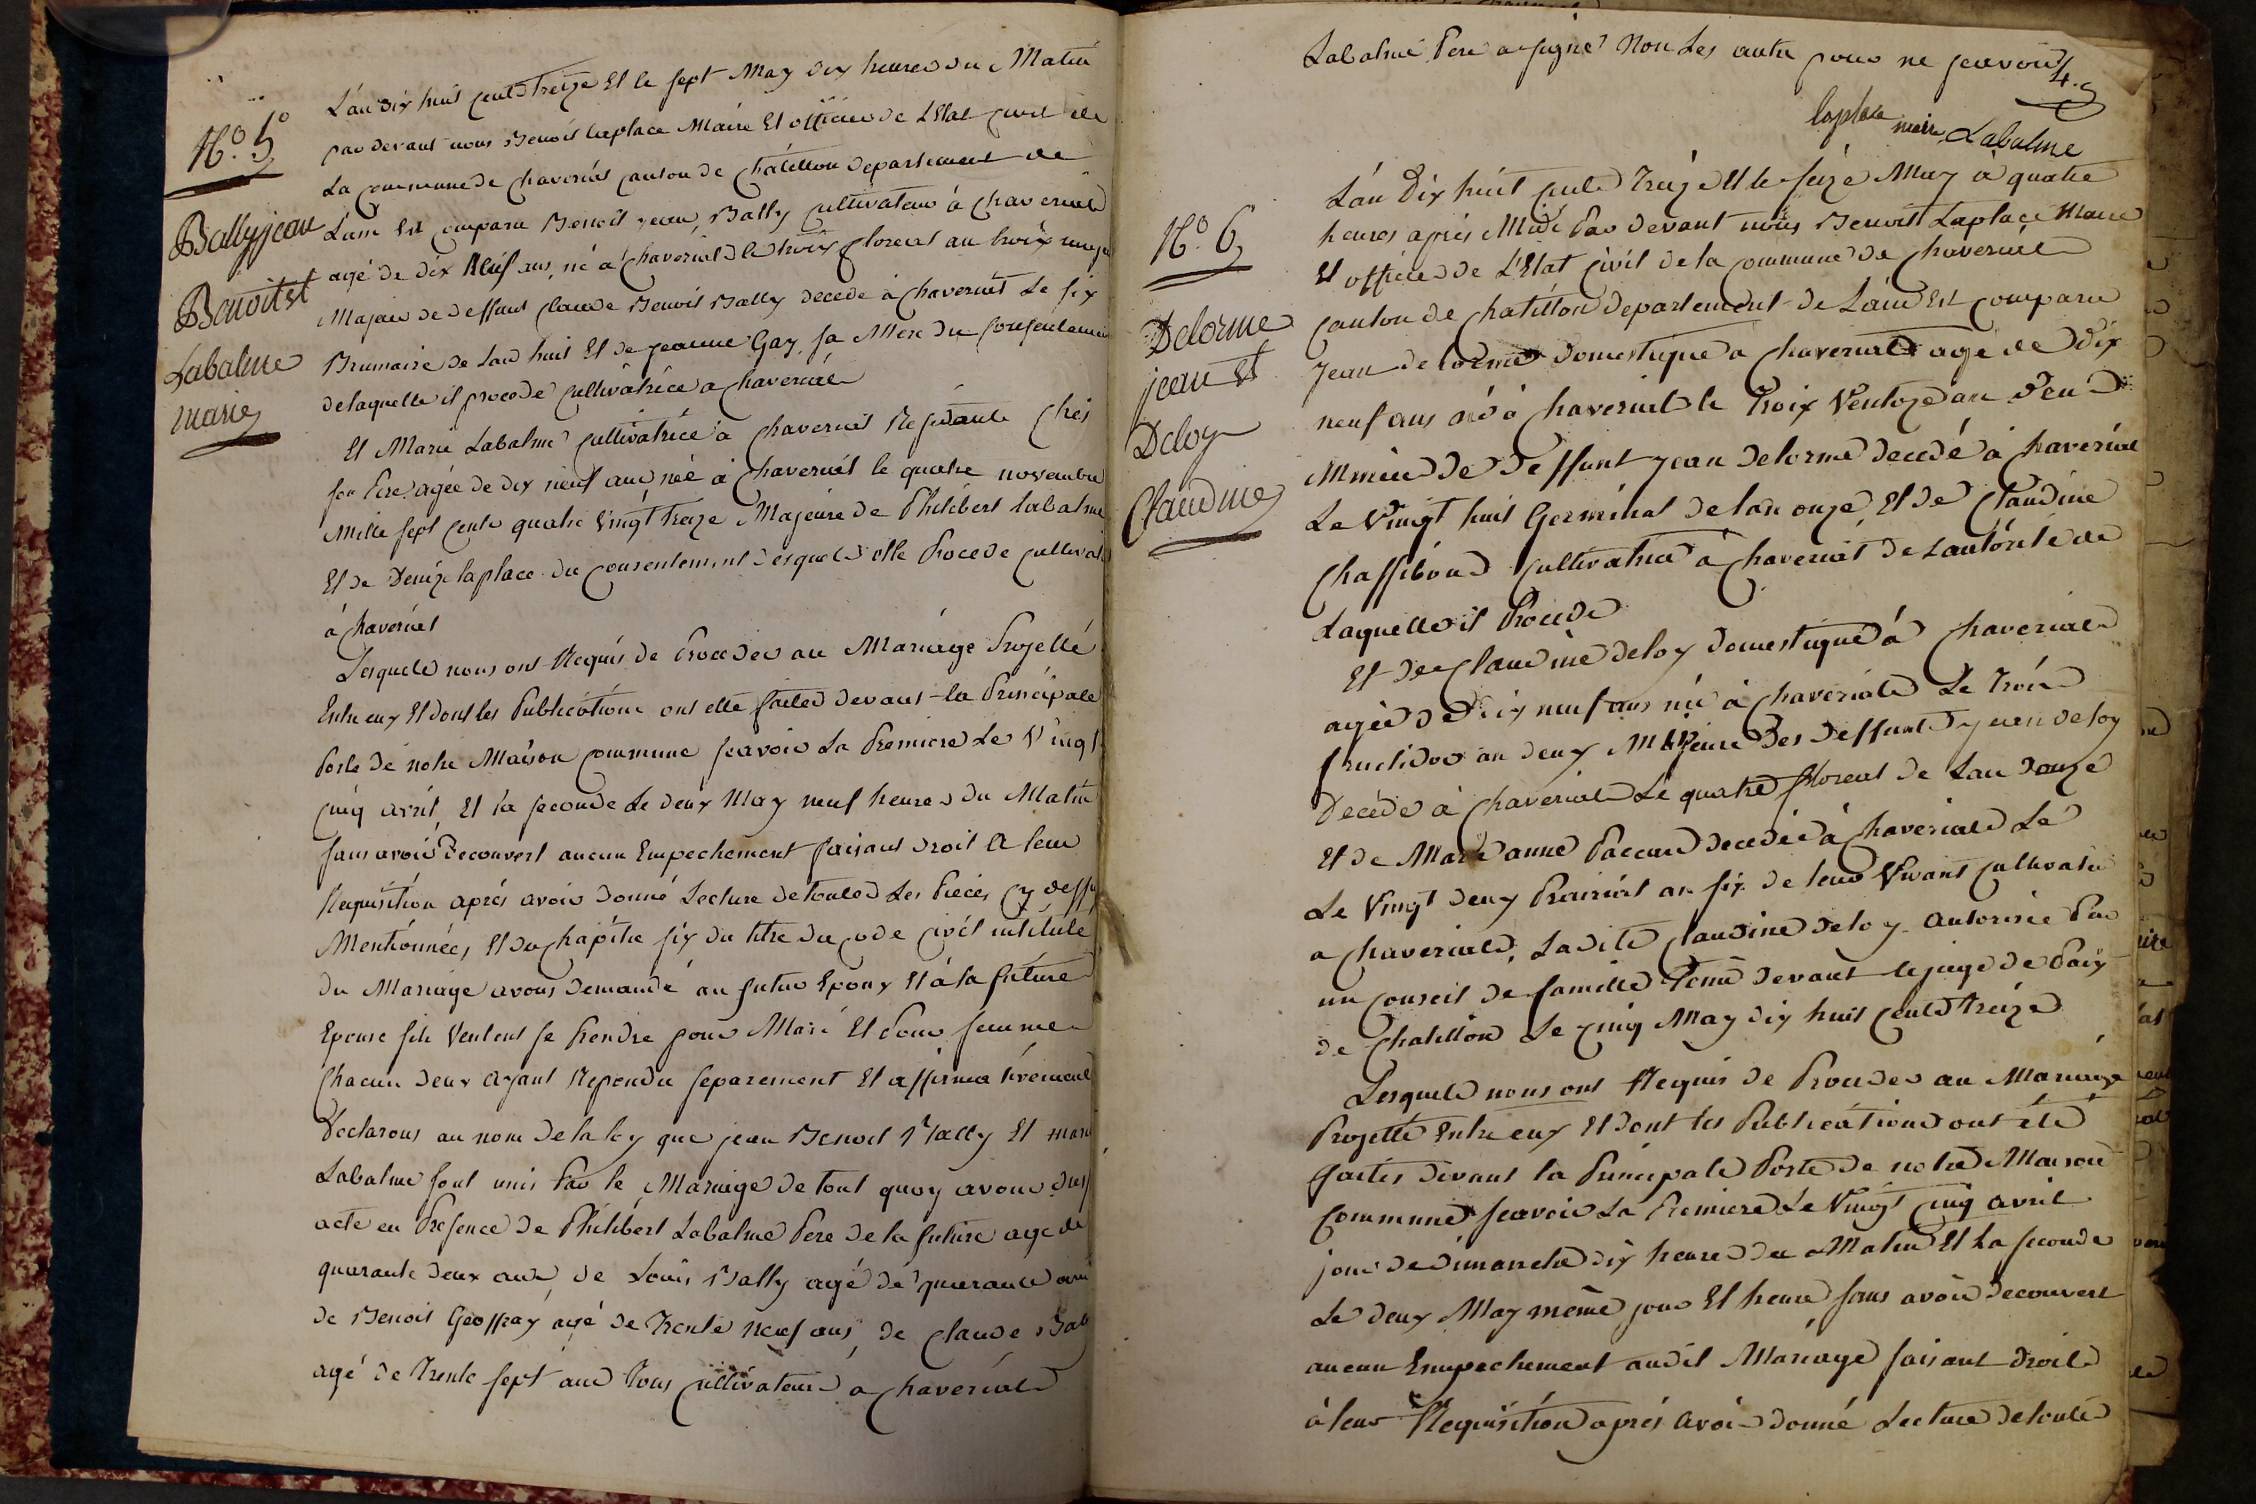 N.º 5º
Bally jean
Benoit et
Labalme
marie
L'an dix huit cents treize Et le sept May dix heures du Matin
par devant nous Benoit laplace Maire Et officier de L'Etat civil de
La commune de chaveriat canton de châtillon departement de
L'ain Est comparu Benoit jean Bally cultivateur à chaveriat
agé de dix Neuf ans, né à chaveriat le troix floreal an troix
Majeur de deffunt claude Benoit Bally decede à chaveriat Le six
Brumaire de Lan huit Et de jeanne Gay, sa Mere du consentement
de laquelle il procede cultivatrice a chaveriat
Et Marie Labalme cultivatrice a chaveriat Residante chés
son Pere, agée de dix neuf ans née à chaveriat le quatre novembre
Mille sept cents quatre Vingt treize Majeure de Philibert labalme
Et de Denize laplace du consentement desquels elle Procede
à chaveriat
Lesquels nous ont Requis de Proceder au Mariage Projetté
Entre eux Et dont les Publications ont etté faites devant la Principale
Porte de notre Maison commune scavoir La Premiere Le Vingt
cinq avril, Et la seconde Le deux May neuf heures du Matin
sans avoir Decouvert aucun Empechement faisant droit A leur
Requisition aprés avoir donné Lecture de toutes Les Pieces cy dessus
Mentionnées, Et du chapitre six du titre du code civil intitulé
du Mariage avons demandé au futur Epoux Et à la future
Epouse sils Veulent se Prendre pour Mari Et Pour femme
chacun deux ayant Repondu separement Et affirmativement
Declarons au nom de la loy que jean Benoit Bally Et marie
Labalme sont unis Par le Mariage de tout quoy avons
acte en Presence de Philibert Labalme Pere de la future age de
quarante deux ans, de Louis Bally agé de quarante ans
de Benoit Geoffray agé de Trente Neuf ans, de claude
agé de Trente sept ans tous cultivateurs a chaveriat
Labalme Pere a signé Non Les autre pour ne scavoir
4.
laplace maire Labalme
N.º 6
Delorme
jean Et
Deloy
Claudine
L'an Dix huit cents Treize Et le seize May à quatre
heures aprés Midi Par devant nous Benoit Laplace Maire
Et officier de L'Etat civil de la commune de chaveriat
canton de chatillon departement de L'ain Est comparu
jean delorme domestique a chaveriat agé de dix
neuf ans né à chaveriat le Troix Ventoze an deux
Mineur de deffunt jean delorme decedé à chaveriat
Le Vingt huit Germinal de lan onze, Et de claudine
cultivatrice à chaveriat de Lautorité de
Laquelle il Procede
Et de claudine deloy domestique à chaveriat
agée de Dix neuf ans née à chaveriat Le Trois
fructidor an deux Majeure Des deffunts jean deloy
Decede à chaveriat Le quatre floreal de Lan douze
Et de Marie anne decedée à chaveriat Le
Le Vingt deux Prairial an six de leur Vivant
a chaveriat, Ladite claudine deloy autorisée Par
un conseil de famille Tenu devant le juge de Paix
de chatillon Le cinq May dix huit cents treize
Lesquels nous ont Requis de Proceder au Mariage
Projetté Entre eux Et dont les Publications ont été
faites devant la Principale Porte de notre Maison
commune scavoir La Premiere Le Vingt cinq avril
jour de dimanche dix heures du Matin Et La seconde
Le deux May même jour Et heure sans avoir decouvert
aucun Empechement audit Mariage faisant droit
à leur Requisition aprés avoir donné Lecture de toute